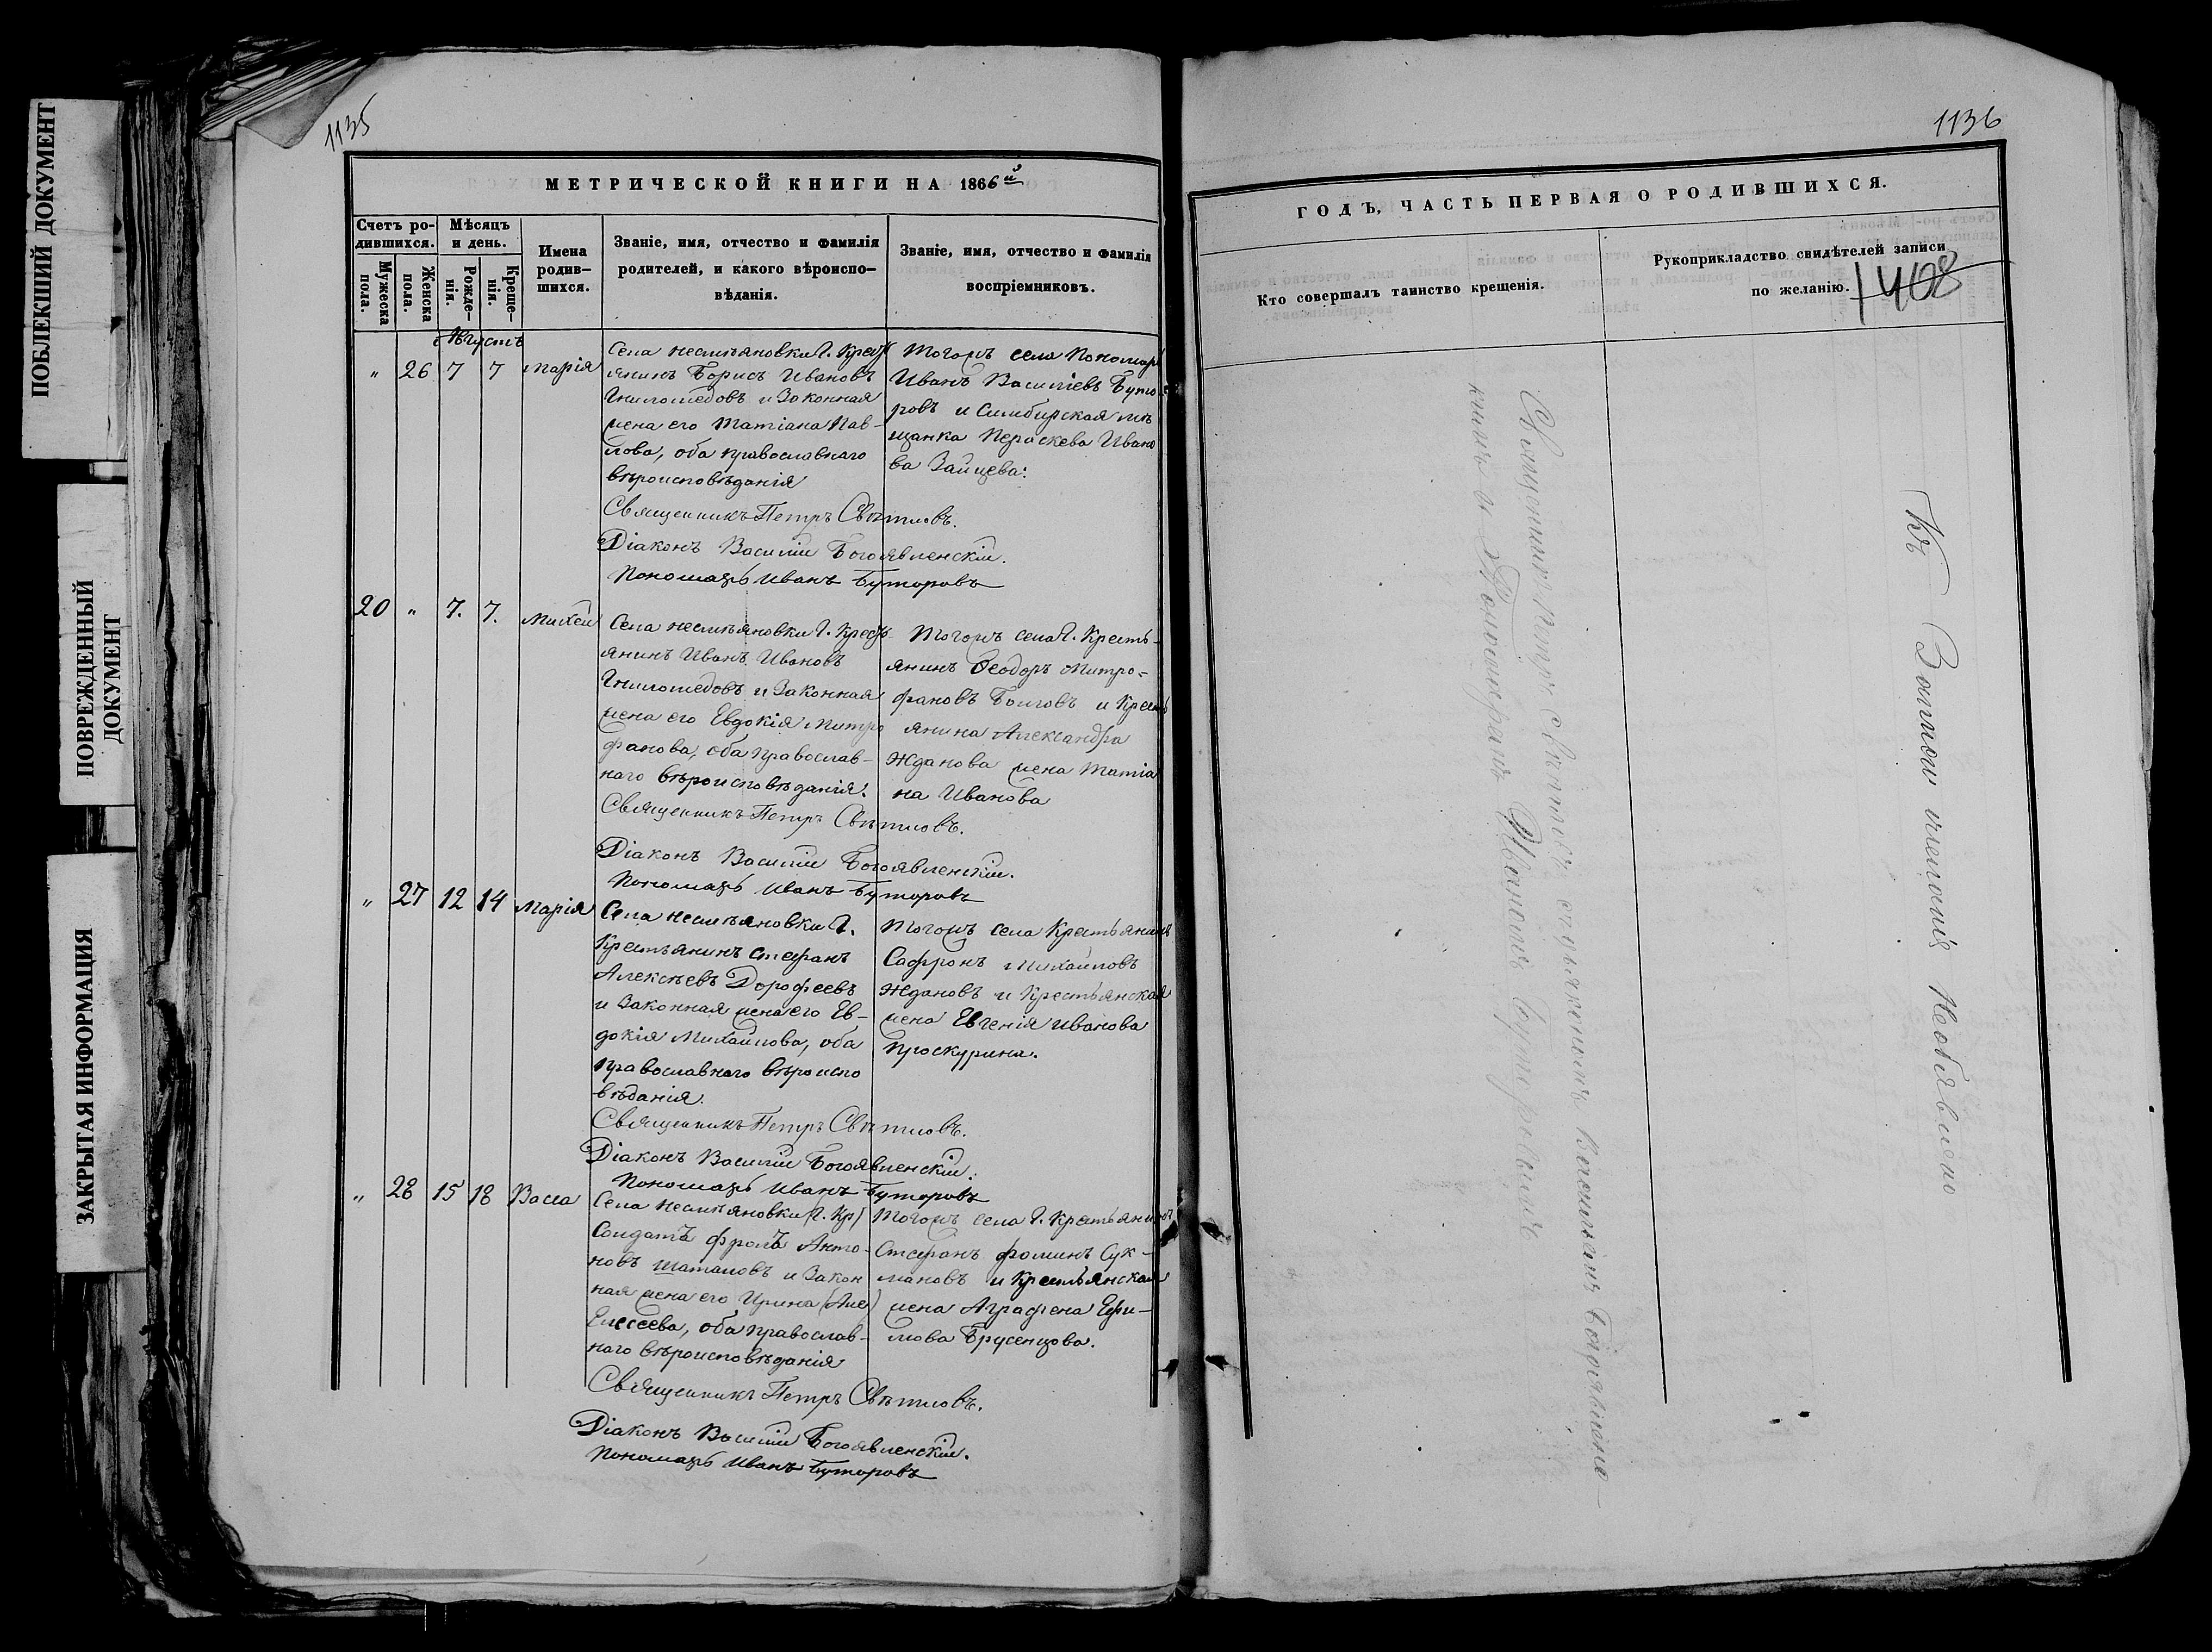 ПОБЛЕКШИЙ ДОКУМЕНТ
ПОВРЕЖДЕННЫЙ
ДОКУМЕНТ
ЗАКРЫТАЯ ИНФОРМАЦИЯ
1135
МЕТРИЧЕСКОЙ КНИГИ НА 1866й
Счетъ ро-
дившихся.
Мужеска
пола.
Женска
пола.
Мѣсяцъ
и день.
Рожде-
нія.
Креще-
нія.
Имена
родив-
шихся.
Званіе, имя, отчество и фамилія
родителей, и какого вѣроиспо-
вѣданія.
Званіе, имя, отчество и фамилія
воспріемниковъ.
Августъ
" 26 7 7 Марія
Села Несмѣяновки Г. Крест
янинъ Борисъ Ивановъ
Гниломедовъ и Законная
жена его Татіана Пав-
лова, оба православнаго
вѣроисповѣданія
Тогожъ села Пономарь
Иванъ Василіевъ Буто
ровъ и Симбирская мѣ
щанка Пераскева Ивано
ва Зайцева.
Священникъ Петръ Свѣтловъ.
Діаконъ Василій Богоявленскій.
Пономарь Иванъ Буторовъ
20 " 7. 7. Михей
Села Несмѣяновки Г. Крест
янинъ Иванъ Ивановъ
Гниломедовъ и Законная
жена его Евдокія Митро
фанова, оба православ-
наго вѣроисповѣданія.
Тогожъ села Г. Кресть-
янинъ Ѳеодоръ Митро-
фановъ Болговъ и Кресть
янина Александра
Жданова жена Татіа
на Иванова
Священникъ Петръ Свѣтловъ.
Діаконъ Василій Богоявленскій.
Пономарь Иванъ Буторовъ
" 27 12 14 Марія
Села Несмѣяновки Г.
Крестьянинъ Стефанъ
Алексѣевъ Дорофеевъ
и Законная жена его Ев-
докія Михайлова, оба
православнаго вѣроиспо
вѣданія.
Тогожъ села Крестьянинъ
Сафронъ Михайловъ
Ждановъ и Крестьянская
жена Евгенія Иванова
Проскурина.
Священникъ Петръ Свѣтловъ.
Діаконъ Василій Богоявленскій.
Пономарь Иванъ Буторовъ
" 28 15 18 Васса
Села Несмѣяновки (Г. Кр)
Солдатъ Фролъ Анто-
новъ Шаталовъ и Закон
ная жена его Ирина (Але)
Елесеева, оба православ-
наго вѣроисповѣданія
Тогожъ села Г. Крестьянинъ
Стефанъ Фоминъ Сук-
мановъ и Крестьянская
жена Аграфена Ефи-
мова Брусенцова.
Священникъ Петръ Свѣтловъ.
Діаконъ Василій Богоявленскій.
Пономарь Иванъ Буторовъ
1136
ГОДЪ, ЧАСТЬ ПЕРВАЯ О РОДИВШИХСЯ.
Кто совершалъ таинство крещенія.
Рукоприкладство свидѣтелей записи
по желанію.
1408
Священникъ Петръ Свѣтловъ съ діакономъ Василіемъ Богоявленс-
кимъ и Пономаремъ Иваномъ Буторовымъ
Къ Записи желанія Необъявлено